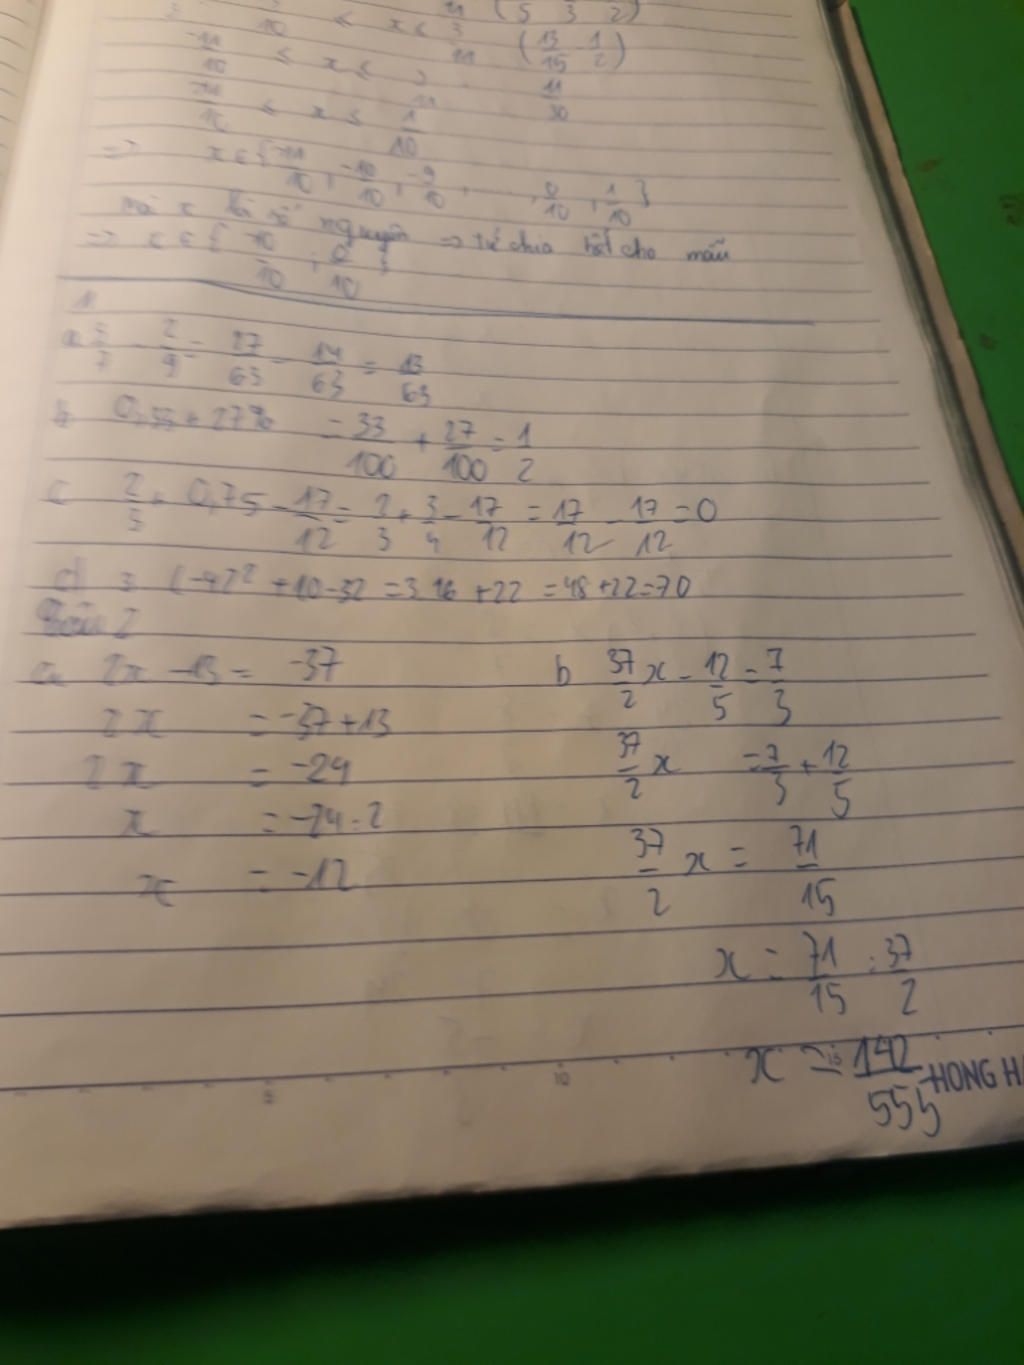 10 < x < 3 ( 5 3 2 )
-11/10 ≤ x ≤ ( 13/15 - 1/2 )
< x ≤ 1/10 11/30
=> x ∈ { -11/10 ; -10/10 ; -9/10 , ....., 0/10 , 1/10 }
mà x là số nguyên => tử chia hết cho mẫu
=> x ∈ { -10/10 ; 0/10 }
1
a 3/7 - 2/9 = 27/63 - 14/63 = 13/63
b 0,33 + 27% = 33/100 + 27/100 = 1/2
c 2/3 + 0,75 - 17/12 = 2/3 + 3/4 - 17/12 = 17/12 - 17/12 = 0
d) 3 (-4)² + |10-32 = 3.16 + 22 = 48 + 22 = 70
Bài 2
a 2x - 13 = -37
2x = -37 + 13
2x = -24
x = -24 : 2
x = -12
b 37/2 x - 12/5 = 7/3
37/2 x = 7/3 + 12/5
37/2 x = 71/15
x = 71/15 : 37/2
x = 142/555
5 10 15
HONG H